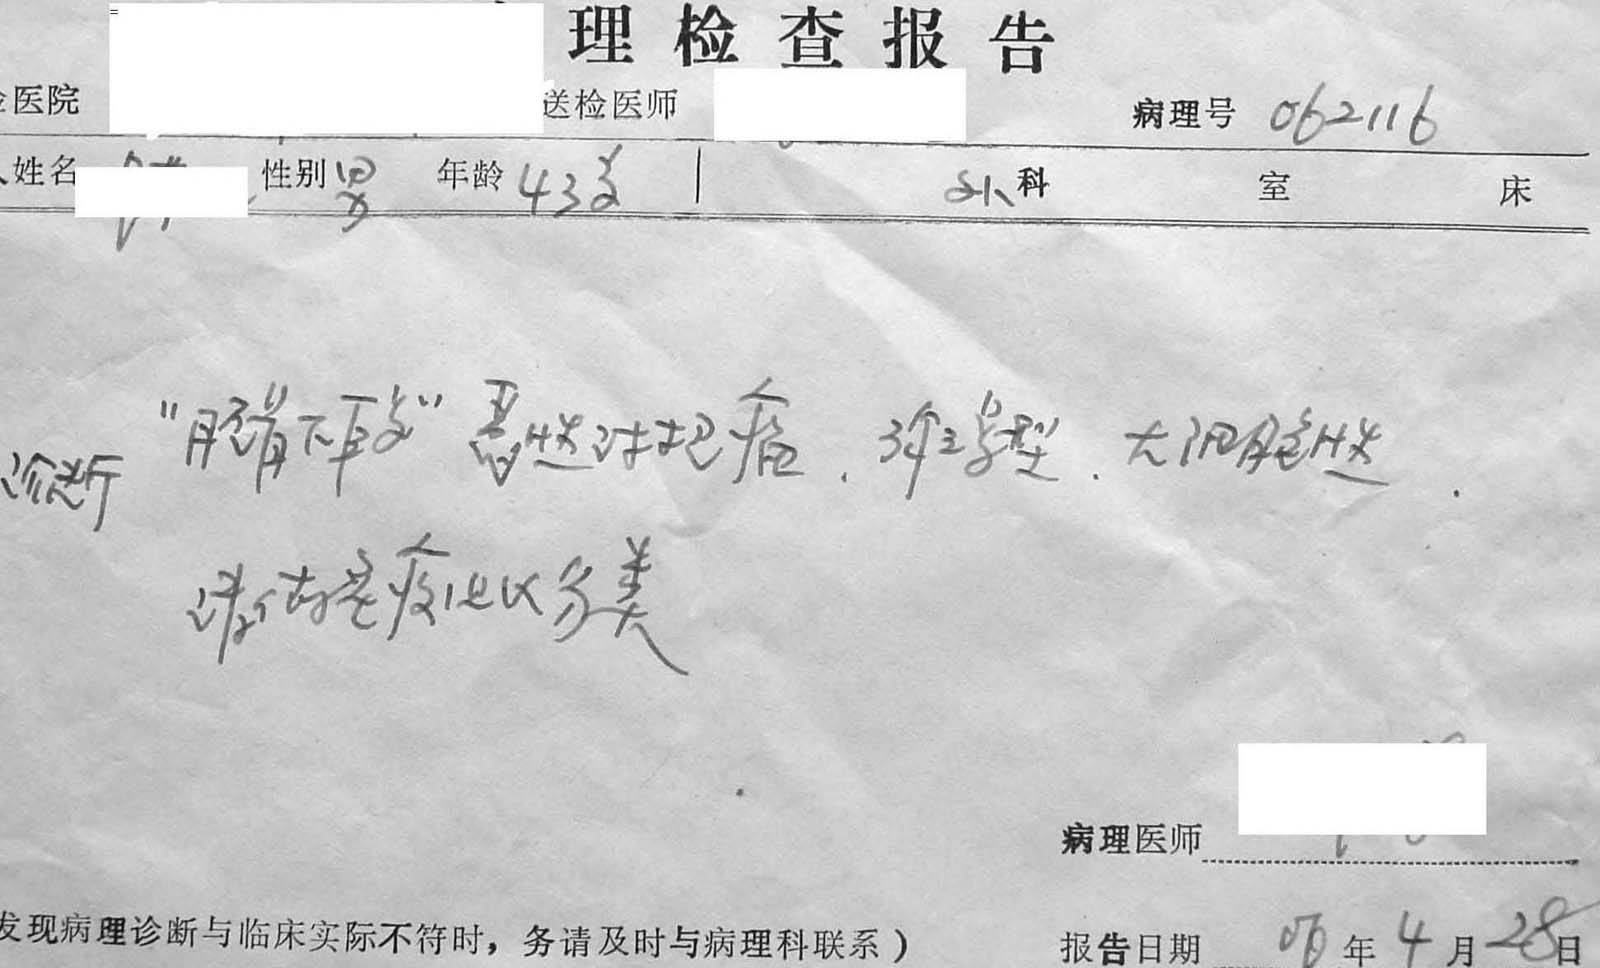 理检查报告
医院 送检医师 病理号 062116
姓名 性别 男 年龄 43岁 外科 室 床
诊断 "腮腺下段" 恶性淋巴瘤. 弥漫型. 大细胞性.
请做免疫组化分类
病理医师
发现病理诊断与临床实际不符时，务请及时与病理科联系） 报告日期 06 年 4 月 28 日